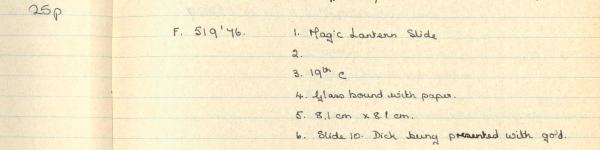 25p
F. 519'76. 1. Magic Lantern Slide
2.
3. 19th C
4. Glass bound with paper.
5. 8.1 cm x 8.1 cm.
6. Slide 10. Dick being presented with gold.